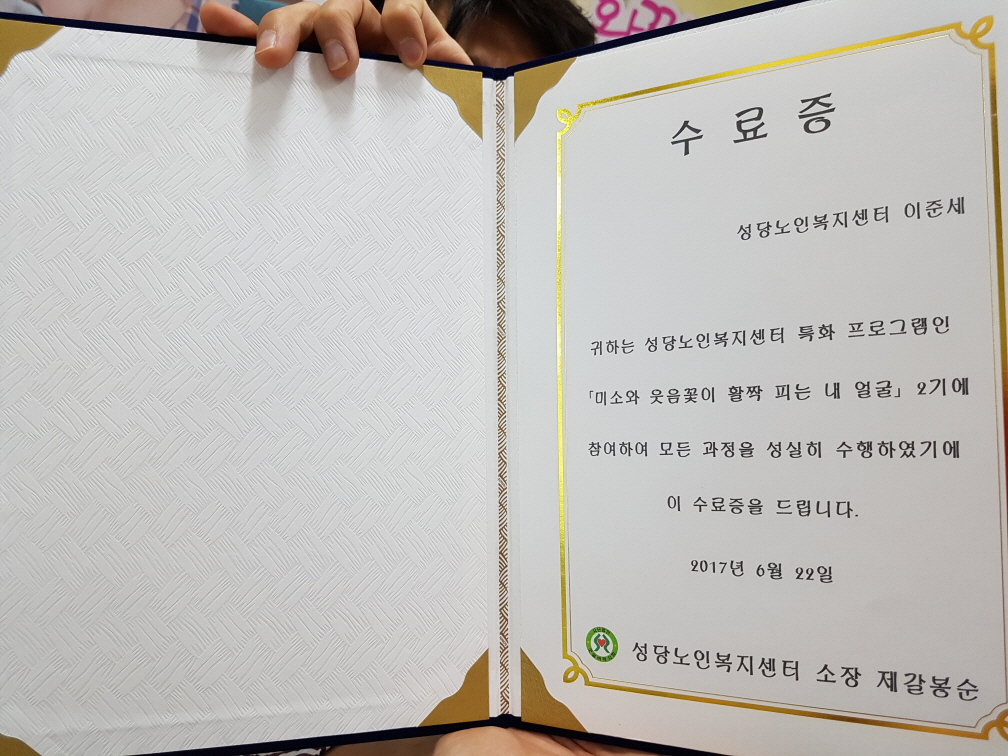 수료증
성당노인복지센터 이준세
귀하는 성당노인복지센터 특화 프로그램인
「미소와 웃음꽃이 활짝 피는 내 얼굴」 2기에
참여하여 모든 과정을 성실히 수행하였기에
이 수료증을 드립니다.
2017년 6월 22일
성당노인복지센터 소장 제갈봉순